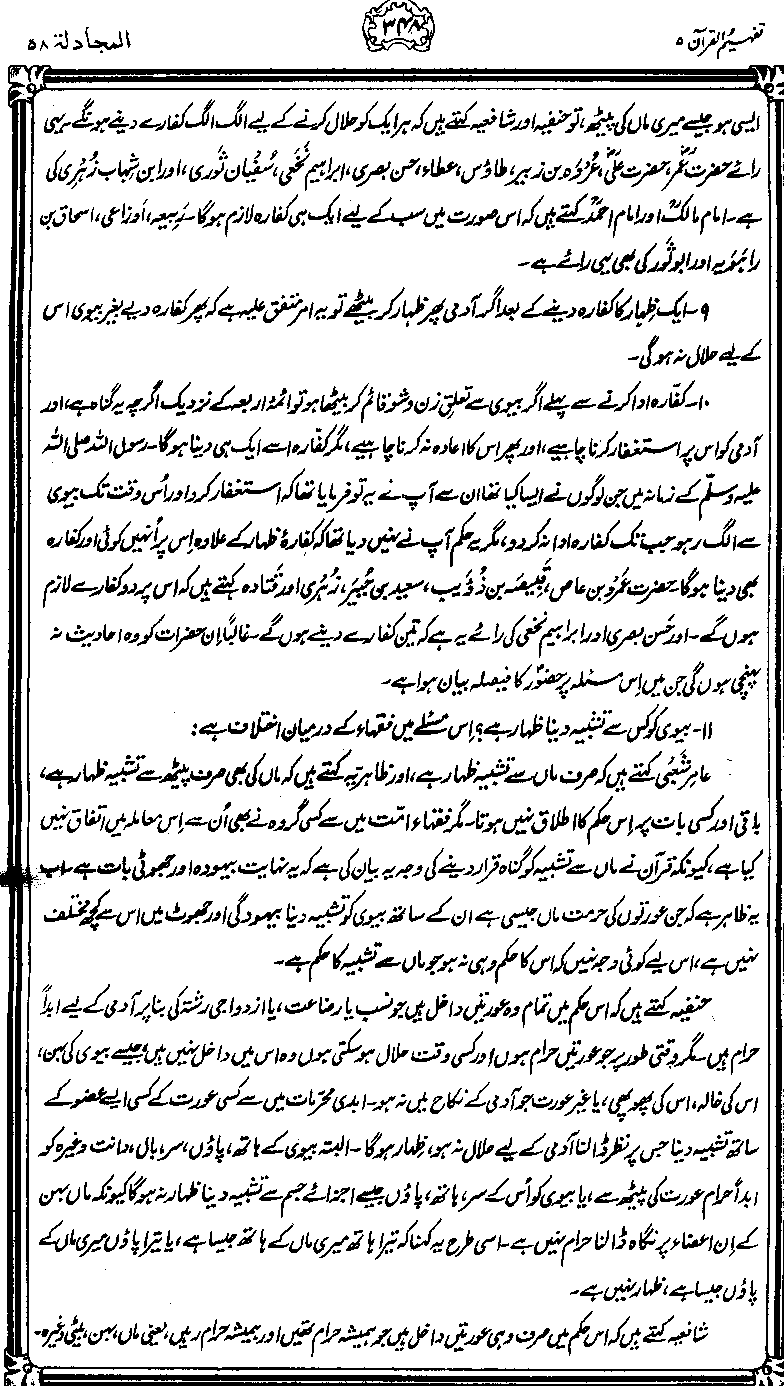 تفہیم القرآن ۵
۳۴۸
المجادلۃ ۵۸
ایسی ہو جیسے میری ماں کی پیٹھ، تو حنفیہ اور شافعیہ کہتے ہیں کہ ہر ایک کو حلال کرنے کے لیے الگ الگ کفارے دینے ہونگے۔ یہی
رائے حضرت عمرؓ، حضرت علیؓ، عُرْوَہ بن زبیر، طاؤس، عطاء، حسن بصری، ابراہیم نَخَعی، سُفیان ثَوری، اور ابن شہاب زُہْری کی
ہے۔ امام مالکؒ اور امام احمدؒ کہتے ہیں کہ اس صورت میں سب کے لیے ایک ہی کفارہ لازم ہوگا۔ رَبیعہ، اَوزاعی، اسحاق بن
راہَوَیہ اور ابو ثَور کی بھی یہی رائے ہے۔
۹۔ ایک ظِہار کا کفارہ دینے کے بعد اگر آدمی پھر ظہار کر بیٹھے تو یہ امر متفق علیہ ہے کہ پھر کفارہ دیے بغیر بیوی اس
کے لیے حلال نہ ہوگی۔
۱۰۔ کفّارہ ادا کرنے سے پہلے اگر بیوی سے تعلقِ زن و شو قائم کر بیٹھا ہو تو ائمۂ اربعہ کے نزدیک اگرچہ یہ گناہ ہے، اور
آدمی کو اس پر استغفار کرنا چاہیے، اور پھر اس کا اعادہ نہ کرنا چاہیے، مگر کفّارہ اسے ایک ہی دینا ہوگا۔ رسول اللہ صلی اللہ
علیہ وسلّم کے زمانہ میں جن لوگوں نے ایسا کیا تھا ان سے آپ نے یہ تو فرمایا تھا کہ استغفار کرو اور اُس وقت تک بیوی
سے الگ رہو جب تک کفارہ ادا نہ کر دو، مگر یہ حکم آپ نے نہیں دیا تھا کہ کفارۂ ظہار کے علاوہ اِس پر اُنہیں کوئی اور کفارہ
بھی دینا ہوگا۔ حضرت عَمْرو بن عاص، قَبِیصَہ بن ذُؤَیب، سعید بن جُبَیر، زُہْری اور قَتادہ کہتے ہیں کہ اس پر دو کفارے لازم
ہوں گے۔ اور حَسن بصری اور ابراہیم نخعی کی رائے یہ ہے کہ تین کفارے دینے ہوں گے۔ غالباً اِن حضرات کو وہ احادیث نہ
پہنچی ہوں گی جن میں اِس مسئلہ پر حضورؐ کا فیصلہ بیان ہوا ہے۔
۱۱۔ بیوی کو کس سے تشبیہ دینا ظہار ہے؟ اِس مسئلے میں فقہاء کے درمیان اختلاف ہے:
عامر شَعْبی کہتے ہیں کہ صرف ماں سے تشبیہ ظہار ہے، اور ظاہریّہ کہتے ہیں کہ ماں کی بھی صرف پیٹھ سے تشبیہ ظہار ہے،
باقی اور کسی بات پر اِس حکم کا اطلاق نہیں ہوتا۔ مگر فقہاء امّت میں سے کسی گروہ نے بھی اُن سے اِس معاملہ میں اتفاق نہیں
کیا ہے، کیونکہ قرآن نے ماں سے تشبیہ کو گناہ قرار دینے کی وجہ یہ بیان کی ہے کہ یہ نہایت بیہودہ اور جھوٹی بات ہے۔ اب
یہ ظاہر ہے کہ جن عورتوں کی حرمت ماں جیسی ہے ان کے ساتھ بیوی کو تشبیہ دینا بیہودگی اور جھوٹ میں اس سے کچھ مختلف
نہیں ہے، اس لیے کوئی وجہ نہیں کہ اس کا حکم وہی نہ ہو جو ماں سے تشبیہ کا حکم ہے۔
حنفیہ کہتے ہیں کہ اس حکم میں تمام وہ عورتیں داخل ہیں جو نسب یا رضاعت، یا ازدواجی رشتہ کی بنا پر آدمی کے لیے ابداً
حرام ہیں۔ مگر وقتی طور پر جو عورتیں حرام ہوں اور کسی وقت حلال ہو سکتی ہوں وہ اس میں داخل نہیں ہیں، جیسے بیوی کی بہن،
اس کی خالہ، اس کی پھوپھی، یا غیر عورت جو آدمی کے نکاح میں نہ ہو۔ ابدی محرّمات میں سے کسی عورت کے کسی ایسے عضو کے
ساتھ تشبیہ دینا جس پر نظر ڈالنا آدمی کے لیے حلال نہ ہو، ظہار ہوگا۔ البتہ بیوی کے ہاتھ، پاؤں، سر، بال، دانت وغیرہ کو
ابداً حرام عورت کی پیٹھ سے، یا بیوی کو اُس کے سر، ہاتھ، پاؤں جیسے اجزائے جسم سے تشبیہ دینا ظہار نہ ہوگا کیونکہ ماں بہن
کے اِن اعضاء پر نگاہ ڈالنا حرام نہیں ہے۔ اسی طرح یہ کہنا کہ تیرا ہاتھ میری ماں کے ہاتھ جیسا ہے، یا تیرا پاؤں میری ماں کے
پاؤں جیسا ہے، ظہار نہیں ہے۔
شافعیہ کہتے ہیں کہ اس حکم میں صرف وہی عورتیں داخل ہیں جو ہمیشہ حرام تھیں اور ہمیشہ حرام رہیں، یعنی ماں، بہن، بیٹی وغیرہ۔